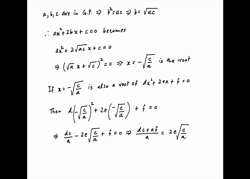 a, b, c are in G.P. ⇒ b² = ac ⇒ b = √ac
∴ ax² + 2bx + c = 0 becomes
ax² + 2√ac x + c = 0
⇒ (√a x + √c)² = 0 ⇒ x = -√(c/a) is the root
If x = -√(c/a) is also a root of dx² + 2ex + f = 0
Then d(-√(c/a))² + 2e(-√(c/a)) + f = 0
⇒ dc/a - 2e√(c/a) + f = 0 ⇒ (dc + af)/a = 2e√(c/a)